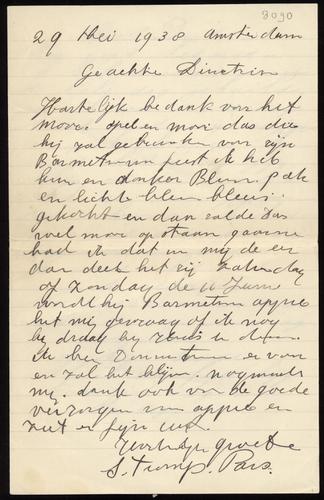 3090
29 Mei 1938 Amsterdam
Geachte Directrin
Hartelijk bedank voor het
mooi spel en mooi das die
hij zal gebruiken voor zijn
Barmetsum feest ik heb
hem een donker Bleu pak
en lichte bleu bleus
gekocht en dan zal de das
wel mooi op staan gaarne
had ik dat u mij de eer
dar deet het zij zaterdag
of zondag de 11 Juni
wordt hij Barmetsum appie
het mij gevraag of ik nog
bedraag bij
ik ben er van
en zal het blijven nogmaals
mij dank ook voor de goede
verzorgen van appie en
ziet er fijn uit
groete
S. Tromp. Pars.